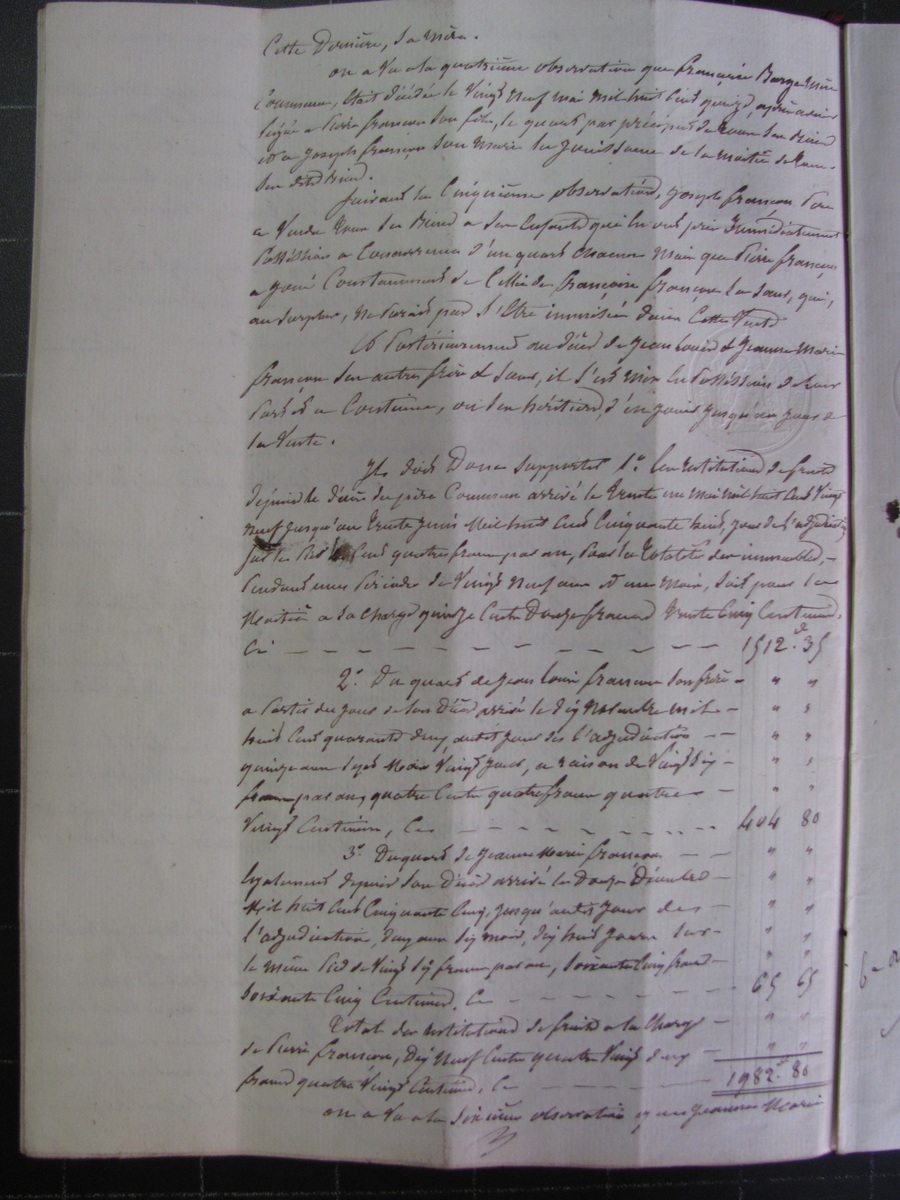 Cette Dernière, sa mère.
on a vu a la quatrième observation que françoise Barge mère
Commune, était décédée le Vingt Neuf mai mil huit Cent quinze, après avoir
légué a Pierre françon son fils, le quart par préciput de tous ses Biens
et a Joseph françon son Mari la Jouissance de la moitié de tous
ses dits Biens.
Suivant la Cinquième observation, Joseph françon Père
a Vendu tous ses Biens a ses Enfants qui en ont pris Immédiatement
Possession a Concurrence d'un quart chacun Mais que Pierre françon
a Joui Constamment de Celui de françoise françon sa sœur, qui,
au surplus, ne parait pas s'être immiscée dans Cette Vente
Et Postérieurement au décès de Jean Louis & Jeanne Marie
françon ses autres frère & sœur, il s'est mis en Possession de leurs
Parts et a Continué, ou ses héritiers, d'en jouir jusqu'au jour de
la Vente.
Il doit Donc supporter 1º. les restitutions de fruits
depuis le décès du père Commun arrivé le trente un Mai mil huit Cent Vingt
neuf jusqu'au trente Juin Mil huit Cent Cinquante huit, jour de l'adjudication
sur le Pied de Cent quatre francs par an, pour la totalité des immeubles,
Pendant une Période de Vingt Neuf ans et un Mois, soit pour la
Moitié a sa charge quinze Cents Douze francs trente Cinq Centimes.
Ci 1512. 35
2º. Du quart de Jean Louis françon son frère
a Partir du jour de son Décès arrivé le dix Novembre mil
huit Cent quarante deux, audit jour de l'adjudication
quinze ans sept Mois Vingt jours, a raison de Vingt six
francs par an, quatre Cents quatre francs quatre
Vingts Centimes, Ci 404 80
3º. Du quart de Jeanne Marie françon
Egalement depuis son Décès arrivé le Douze Décembre
Mil huit Cent Cinquante Cinq, jusqu'audit Jour de
l'adjudication, deux ans six mois, dix huit jours sur
le même Pied de Vingt six francs par an, soixante Cinq francs
soixante Cinq Centimes, Ci 65 65
Total des restitutions de fruits a la charge
de Pierre françon, Dix Neuf Cents quatre Vingt deux
francs quatre Vingts Centimes, Ci 1982. 80
on a vu a la sixième observation que Jeanne Marie